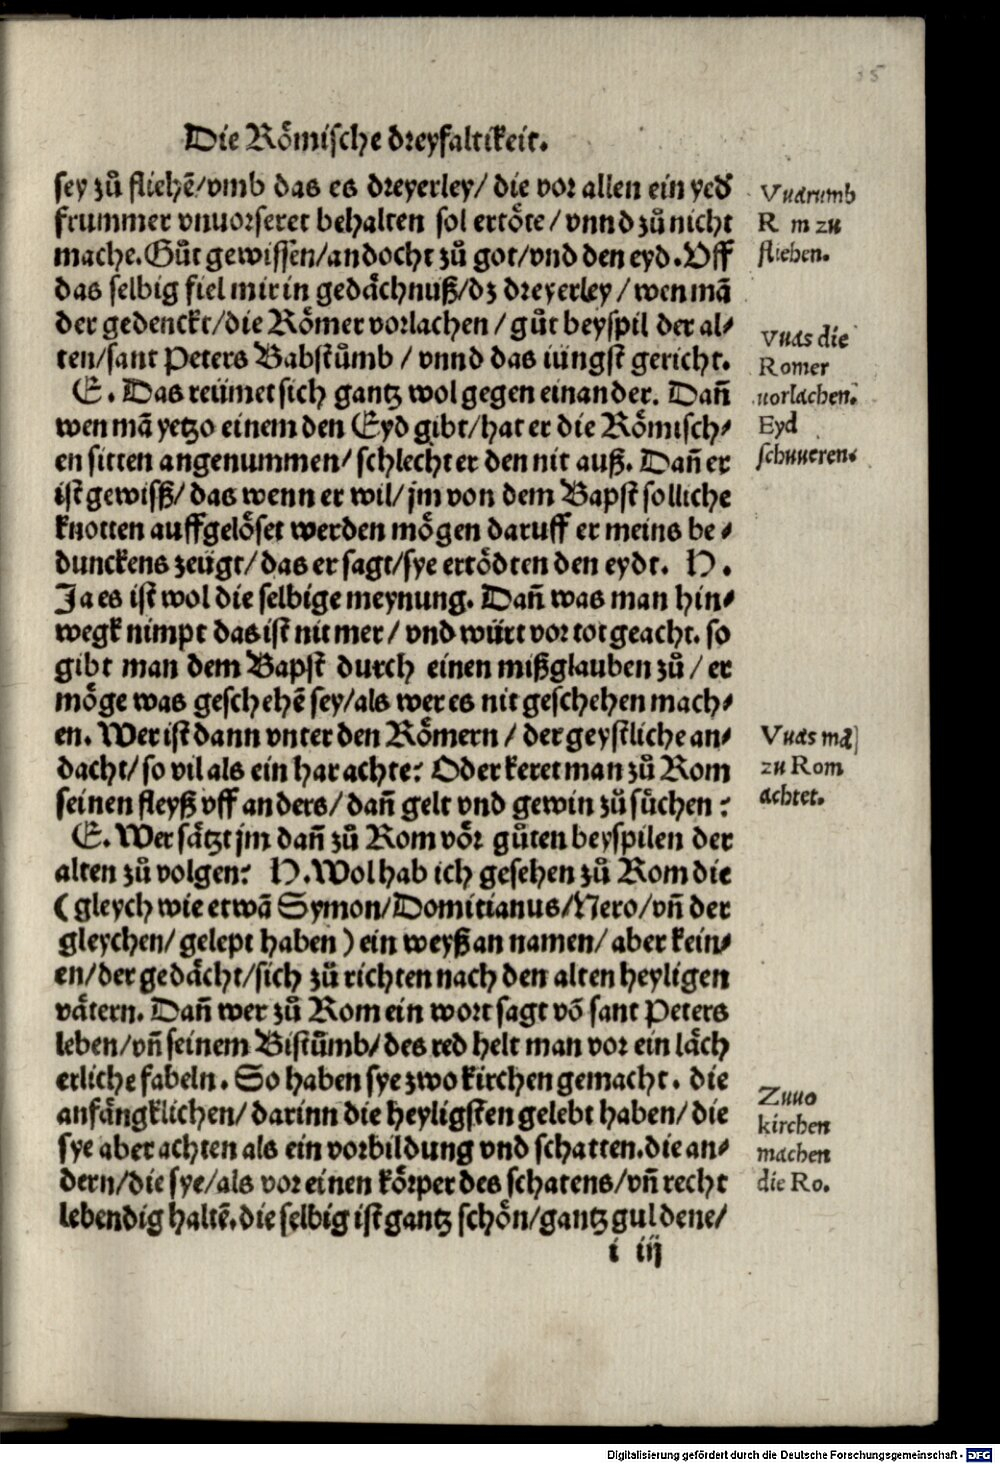 35
Die Roͤmische dreyfaltikeit.
sey zuͦ fliehē/vmb das es dreyerley/ die vor allen ein yed̕
frummer vnuorseret behalten sol ertoͤte/vnnd zuͦ nicht
mache. Guͦt gewissen/andocht zuͦ got/vnd den eyd. Vff
das selbig fiel mir in gedaͤchnuß/dz dreyerley/wen mā
der gedenckt/die Roͤmer vorlachen/guͦt beyspil der al⸗
ten/sant Peters Babstuͦmb/vnnd das iüngst gericht.
E. Das reümet sich gantz wol gegen einander. Dan̄
wen mā yetzo einem den Eyd gibt/hat er die Roͤmisch⸗
en sitten angenummen/schlecht er den nit auß. Dan̄ er
ist gewisß/das wenn er wil/jm von dem Bapst solliche
knotten auffgeloͤset werden moͤgen daruff er meins be⸗
dunckens zeügt/das er sagt/sye ertoͤdten den eydt. H.
Ja es ist wol die selbige meynung. Dan̄ was man hin⸗
wegk nimpt das ist nit mer/vnd würt vor tot geacht. so
gibt man dem Bapst durch einen mißglauben zuͦ/er
moͤge was geschehē sey/als wer es nit geschehen mach⸗
en. Wer ist dann vnter den Roͤmern/der geystliche an⸗
dacht/so vil als ein har achte? Oder keret man zuͦ Rom
seinen fleyß vff anders/dan̄ gelt vnd gewin zuͦ suͦchen?
E. Wer saͤtzt jm dan̄ zuͦ Rom voͤr guͦten beyspilen der
alten zuͦ volgen? H. Wol hab ich gesehen zuͦ Rom die
(gleych wie etwā Symon/Domitianus/Nero/vn̄ der
gleychen/gelept haben) ein weyß an namen/aber kein⸗
en/der gedaͤcht/sich zuͦ richten nach den alten heyligen
vaͤtern. Dan̄ wer zuͦ Rom ein wort sagt vō sant Peters
leben/vn̄ seinem Bistuͦmb/des red helt man vor ein laͤch
erliche fabeln. So haben sye zwo kirchen gemacht. die
anfaͤngklichen/darinn die heyligsten gelebt haben/die
sye aber achten als ein vorbildung vnd schatten. die an⸗
dern/die sye/als vor einen koͤrper des schatens/vn̄ recht
lebendig haltē. die selbig ist gantz schoͤn/gantz guldene/
i iij
Vuarumb
R m zu
fliehen.
Vuas die
Romer
uorlachen.
Eyd
schuueren.
Vuas mā
zu Rom
achtet.
Zuuo
kirchen
machen
die Ro.
Digitalisierung gefördert durch die Deutsche Forschungsgemeinschaft - DFG